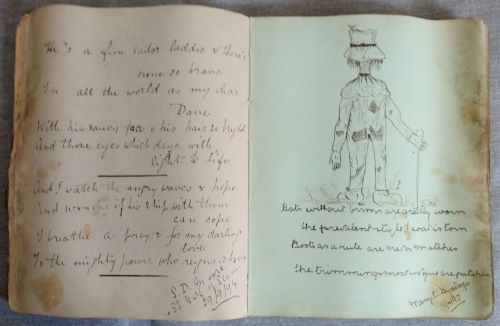 He is a fine sailor laddie & there's
none so brave
In all the world as my dear
Dave
With his saucy face & his hair so bright
And those eyes which dance with
light & life.
And I watch the angry waves & hope
And wonder if his ship with them
can cope
I breathe a prayer for my darling
love
To the mighty power who reigns above
S.D.
Hats without brims are greatly worn
The prevalent style of coat is torn
Boots as a rule are never matches
The trimmings most in vogue are patches
Mary E.